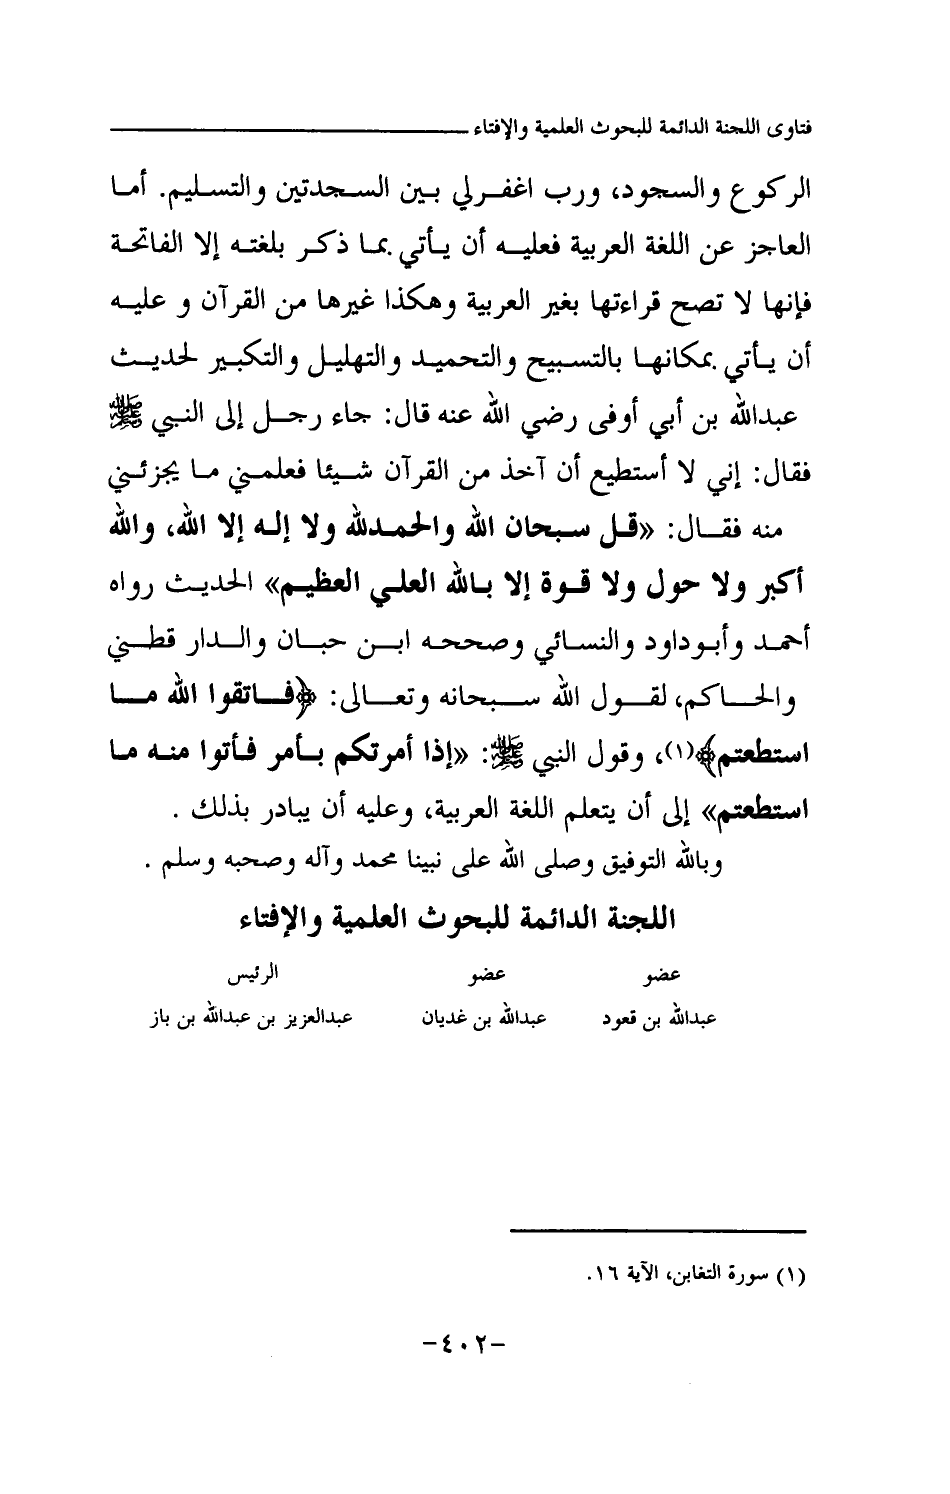 فتاوى اللجنة الدائمة للبحوث العلمية والإفتاء
الركوع والسجود، ورب اغفرلي بين السجدتين والتسليم. أما
العاجز عن اللغة العربية فعليه أن يأتي بما ذكر بلغته إلا الفاتحة
فإنها لا تصح قراءتها بغير العربية وهكذا غيرها من القرآن و عليه
أن يأتي بمكانها بالتسبيح والتحميد والتهليل والتكبير لحديث
عبدالله بن أبي أوفى رضي الله عنه قال: جاء رجل إلى النبي ﷺ
فقال: إني لا أستطيع أن آخذ من القرآن شيئا فعلمني ما يجزئني
منه فقال: «قل سبحان الله والحمدلله ولا إله إلا الله، والله
أكبر ولا حول ولا قوة إلا بالله العلي العظيم» الحديث رواه
أحمد وأبوداود والنسائي وصححه ابن حبان والدار قطني
والحاكم، لقول الله سبحانه وتعالى: ﴿فاتقوا الله ما
استطعتم﴾(١)، وقول النبي ﷺ: «إذا أمرتكم بأمر فأتوا منه ما
استطعتم» إلى أن يتعلم اللغة العربية، وعليه أن يبادر بذلك .
وبالله التوفيق وصلى الله على نبينا محمد وآله وصحبه وسلم .
اللجنة الدائمة للبحوث العلمية والإفتاء
عضو عضو الرئيس
عبدالله بن قعود عبدالله بن غديان عبدالعزيز بن عبدالله بن باز
(١) سورة التغابن، الآية ١٦.
-٤٠٢-